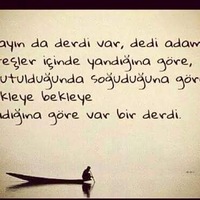 ayın da derdi var, dedi adam
eşler içinde yandığına göre,
utulduğunda soğuduğuna göre
kleye bekleye
dığına göre var bir derdi.